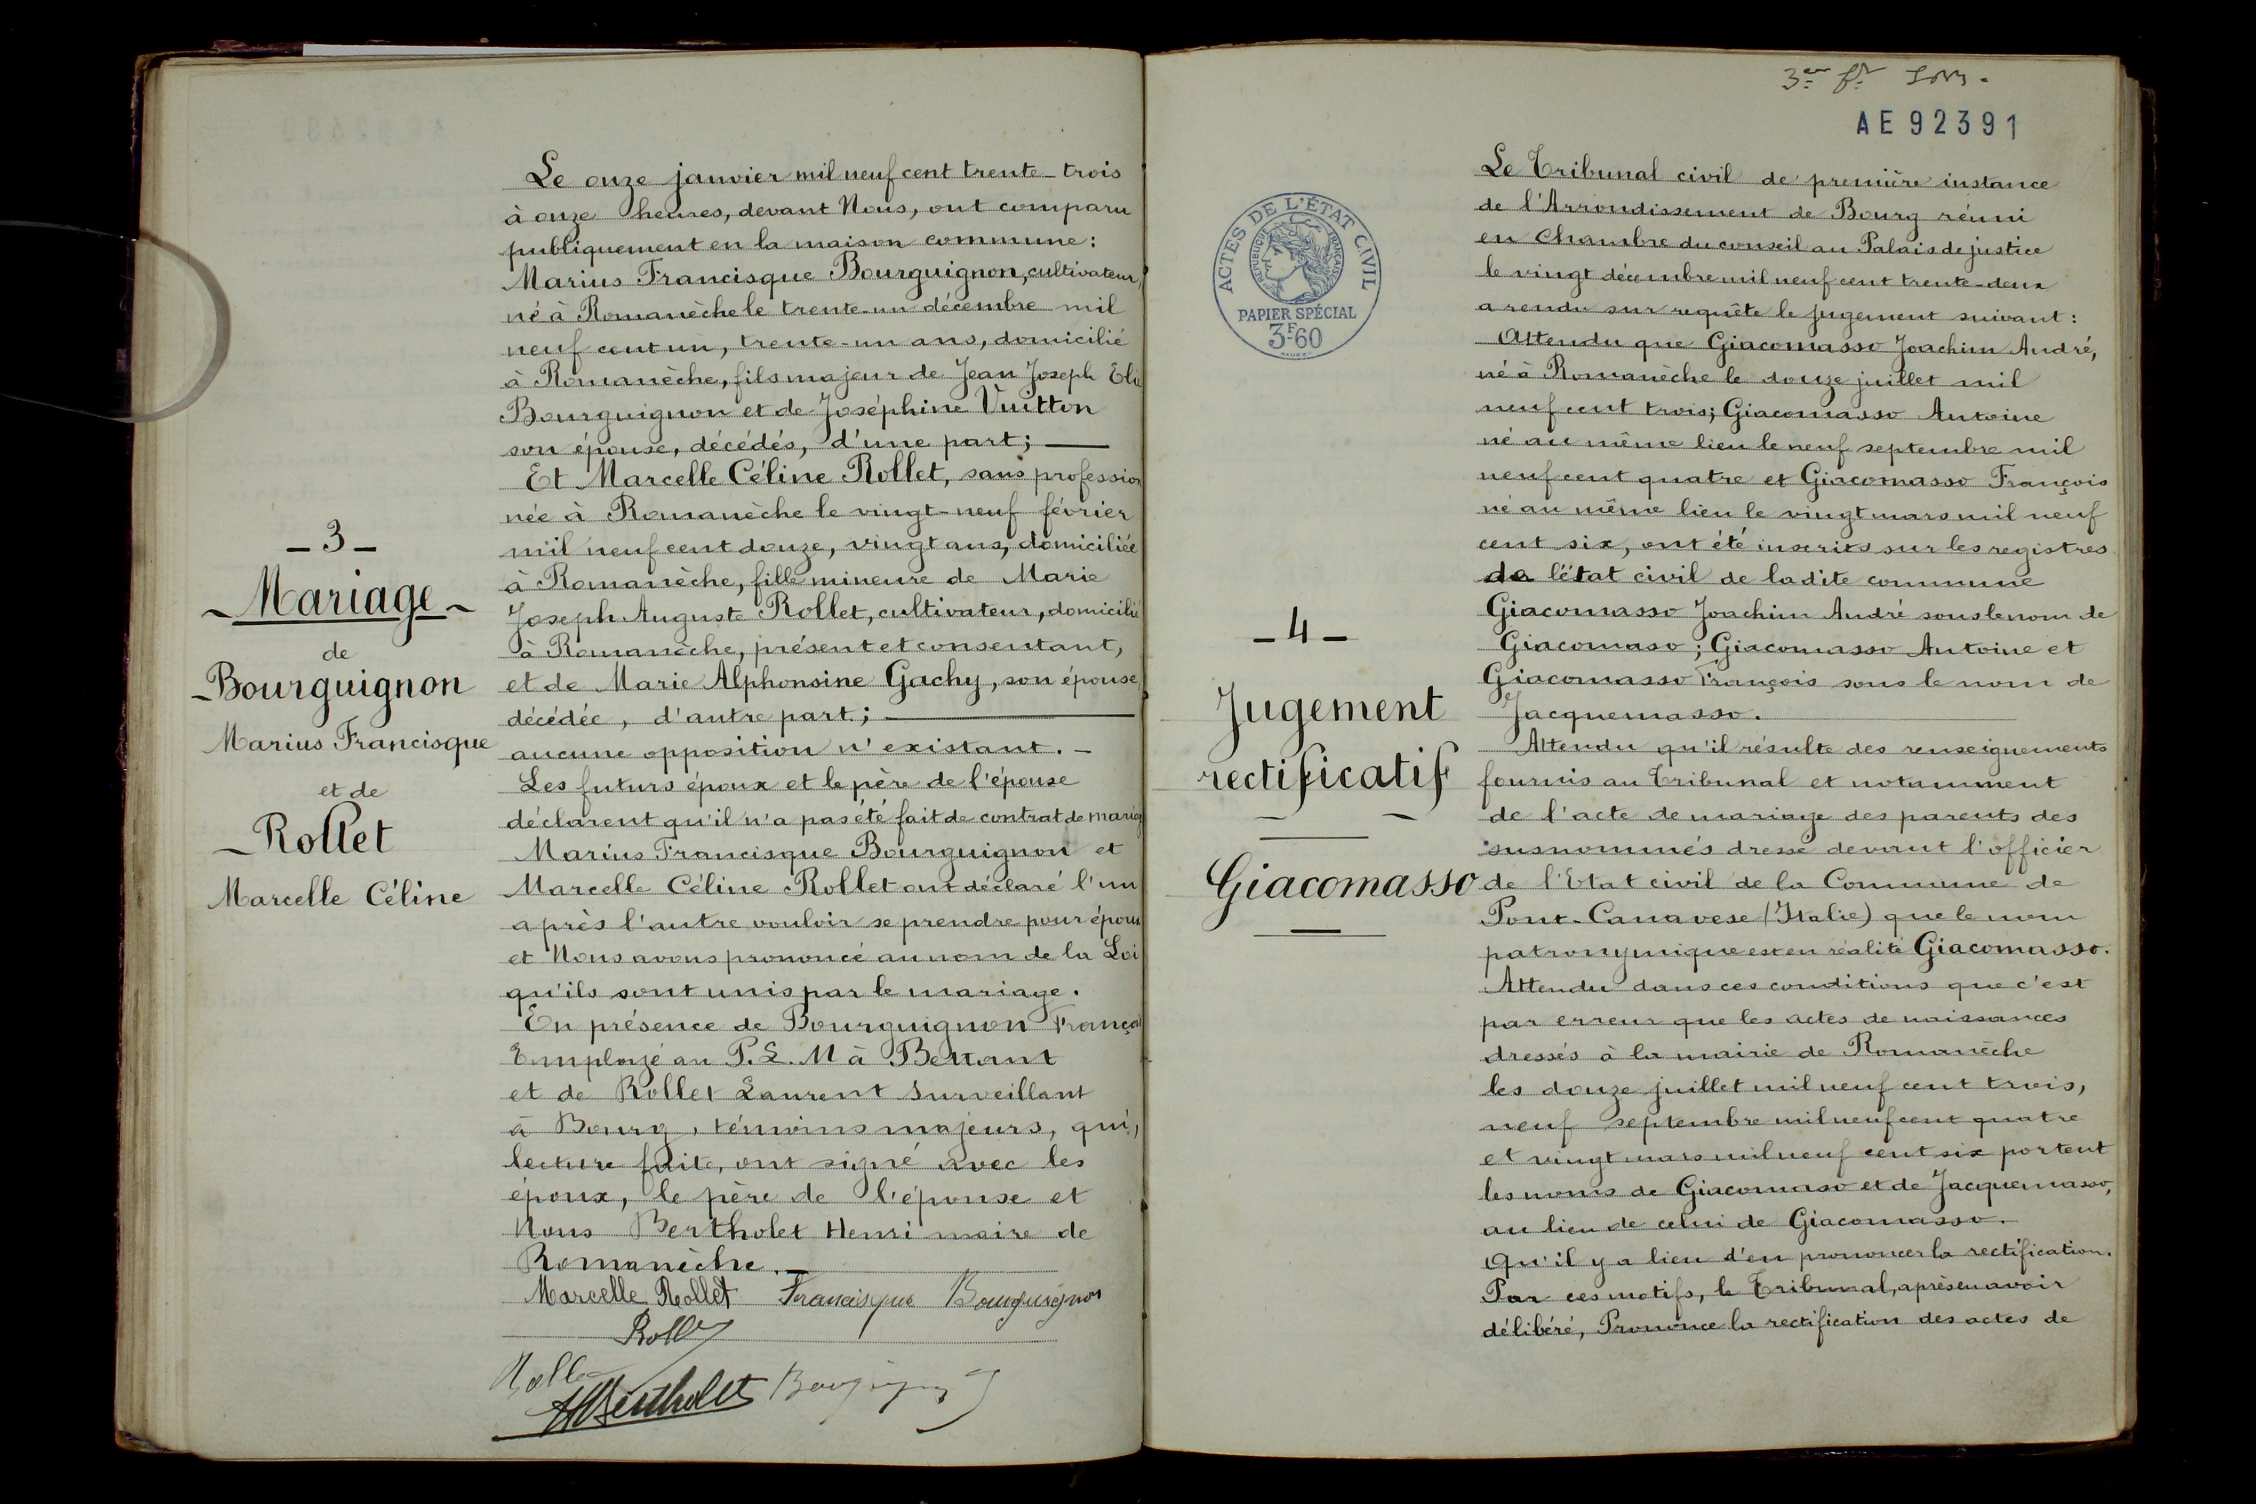 - 3 -
Mariage
de
Bourguignon
Marius Francisque
et de
Rollet
Marcelle Céline
Le onze janvier mil neuf cent trente-trois
à onze heures, devant Nous, ont comparu
publiquement en la maison commune :
Marius Francisque Bourguignon, cultivateur,
né à Romanèche le trente-un décembre mil
neuf cent un, trente-un ans, domicilié
à Romanèche, fils majeur de Jean Joseph Elie
Bourguignon et de Joséphine Vuitton
son épouse, décédés, d'une part ;
Et Marcelle Céline Rollet, sans profession
née à Romanèche le vingt-neuf février
mil neuf cent douze, vingt ans, domiciliée
à Romanèche, fille mineure de Marie
Joseph Auguste Rollet, cultivateur, domicilié
à Romanèche, présent et consentant,
et de Marie Alphonsine Gachy, son épouse,
décédée, d'autre part ;
aucune opposition n'existant. -
Les futurs époux et le père de l'épouse
déclarent qu'il n'a pas été fait de contrat de mariag
Marius Francisque Bourguignon et
Marcelle Céline Rollet ont déclaré l'un
après l'autre vouloir se prendre pour époux
et Nous avons prononcé au nom de la Loi
qu'ils sont unis par le mariage.
En présence de Bourguignon François
Employé au P. L. M à
et de Rollet Laurent Surveillant
à Bourg, témoins majeurs, qui,
lecture faite, ont signé avec les
époux, le père de l'épouse et
Nous Bertholet Henri maire de
Romanèche.
Marcelle Rollet Francisque Bourguignon
Rollet
HBertholet
AE 92391
ACTES DE L'ÉTAT CIVIL
RÉPUBLIQUE FRANÇAISE
PAPIER SPÉCIAL
3F60
- 4 -
Jugement
rectificatif
Giacomasso
Le Tribunal civil de première instance
de l'Arrondissement de Bourg réuni
en Chambre du conseil au Palais de justice
le vingt décembre mil neuf cent trente-deux
a rendu sur requête le jugement suivant :
Attendu que Giacomasso Joachim André,
né à Romanèche le douze juillet mil
neuf cent trois ; Giacomasso Antoine
né au même lieu le neuf septembre mil
neuf cent quatre et Giacomasso François
né au même lieu le vingt mars mil neuf
cent six, ont été inscrits sur les registres
de l'état civil de ladite commune
Giacomasso Joachim André sous le nom de
Giacomaso ; Giacomasso Antoine et
Giacomasso François sous le nom de
Jacquemasso.
Attendu qu'il résulte des renseignements
fournis au Tribunal et notamment
de l'acte de mariage des parents des
susnommés dressé devant l'officier
de l'Etat civil de la Commune de
Pont-Canavese (Italie) que le nom
patronymique est en réalité Giacomasso.
Attendu dans ces conditions que c'est
par erreur que les actes de naissances
dressés à la mairie de Romanèche
les douze juillet mil neuf cent trois,
neuf septembre mil neuf cent quatre
et vingt mars mil neuf cent six portent
les noms de Giacomaso et de Jacquemasso,
au lieu de celui de Giacomasso.
Qu'il y a lieu d'en prononcer la rectification.
Par ces motifs, le Tribunal, après en avoir
délibéré, Prononce la rectification des actes de